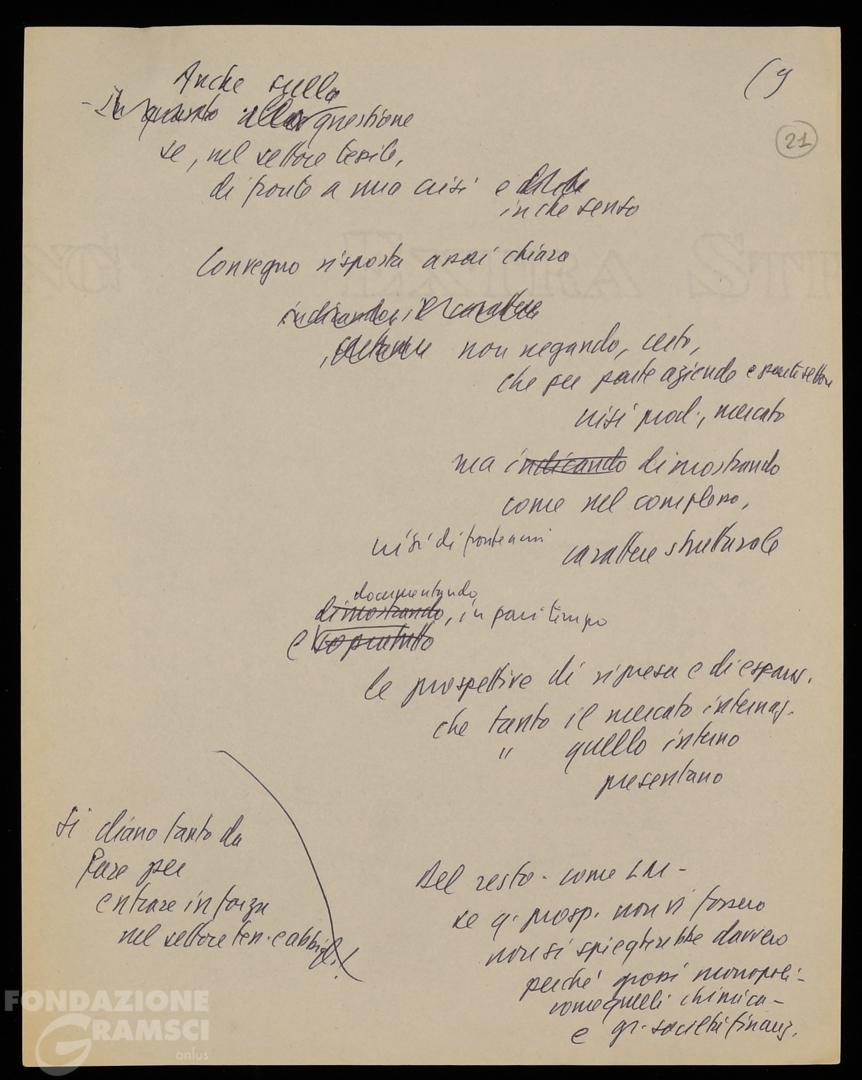 (9
21
Anche sulla
- In quanto alla questione
se, nel settore tessile,
di fronte a una crisi e
in che senso
Convegno risposta assai chiara
indicando il carattere
, non negando, certo,
che per parte aziende e parte settore
crisi prod., mercato
ma indicando dimostrando
come nel complesso,
crisi di fronte a cui carattere strutturale
documentando
dimostrando, in pari tempo
e soprattutto
le prospettive di ripresa e di espans.
che tanto il mercato internaz.
" quello interno
presentano
Del resto - come LM -
se q. prosp. non vi fossero
non si spiegherebbe davvero
perché grossi monopoli -
come quelli chimica -
e gr. società finanz.
si diano tanto da
fare per
entrare in forza
nel settore tess. e abbigl.!
FONDAZIONE
GRAMSCI
onlus